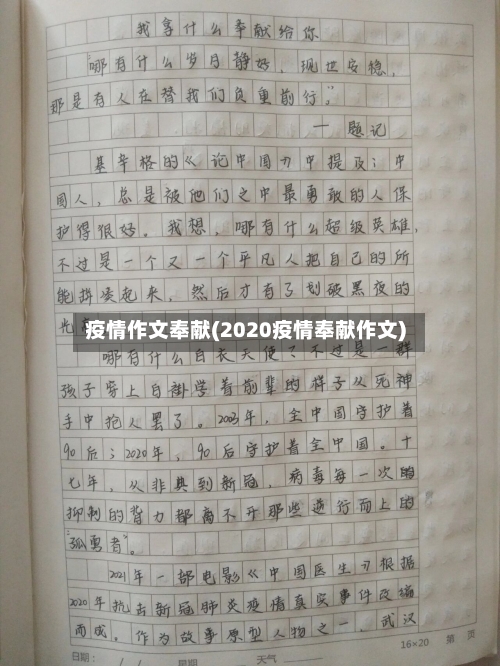 我拿什么奉献给你
“哪有什么岁月静好，现世安稳，
那是有人在替我们负重前行。”
—题记
基辛格的《论中国》中提及：中
国人，总是被他们之中最勇敢的人保
护得很好。我想，哪有什么超级英雄，
不过是一个又一个平凡人把自己的所
能拼凑起来，然后才有了划破黑夜的
光
疫情作文奉献(2020疫情奉献作文)
哪有什么白衣天使？不过是一群
孩子穿上白褂学着前辈的样子从死神
手中抢人罢了。2003年，全中国守护着
90后；2020年，90后守护着全中国。十
七年，从非典到新冠，病毒每一次的
抑制的背力都离不开那些逆行而上的
“孤勇者”。
2021年一部电影《中国医生》根据
2020年抗击新冠肺炎疫情真实事件改编
而成，作为故事原型人物之一，武汉
16×20 第 页
日期： / / 星期 天气